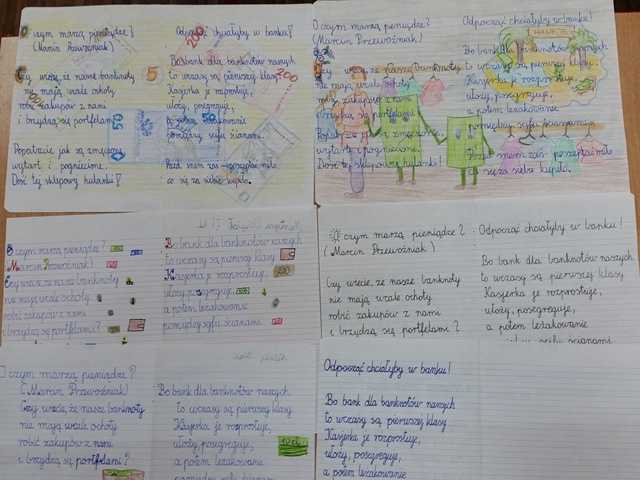 O czym marzą pieniądze?
(Marcin Przewoźniak)
Czy wiecie, że nasze banknoty
nie mają wcale ochoty
robić zakupów z nami
i brzydzą się portfelami?
Popatrzcie jak są zmięte
wytarte i pogniecione.
Dość tej sklepowej hulanki!
Odpocząć chciałyby w banku!
Bo bank dla banknotów naszych
to wczasy są pierwszej klasy
Kasjerka je rozprostuje,
ułoży, posegreguje,
a potem leżakowanie
pomiędzy sejfu ścianami.
co się za siebie kupiło.
50
5
200
50
100
O czym marzą pieniądze?
(Marcin Przewoźniak)
Czy wiecie, że nasze banknoty
nie mają wcale ochoty
robić zakupów z nami
i brzydzą się portfelami?
Popatrzcie jak są zmięte
wytarte i pogniecione.
Dość tej sklepowej hulanki!
Odpocząć chciałyby w banku!
Bo bank dla banknotów naszych
to wczasy są pierwszej klasy.
Kasjerka je rozprostuje,
ułoży, posegreguje,
a potem leżakowanie
pomiędzy sejfu ścianami.
co się za siebie kupiło.
O czym marzą pieniądze?
(Marcin Przewoźniak)
Czy wiecie, że nasze banknoty
nie mają wcale ochoty
robić zakupów z nami
i brzydzą się portfelami?
Bo bank dla banknotów naszych
to wczasy są pierwszej klasy
Kasjerka je rozprostuje,
ułoży, posegreguje,
a potem leżakowanie
pomiędzy sejfu ścianami.
O czym marzą pieniądze?
(Marcin Przewoźniak)
Czy wiecie, że nasze banknoty
nie mają wcale ochoty
robić zakupów z nami
i brzydzą się portfelami?
Odpocząć chciałyby w banku!
Bo bank dla banknotów naszych
to wczasy są pierwszej klasy
Kasjerka je rozprostuje,
ułoży, posegreguje,
a potem leżakowanie
sejfu ścianami
O czym marzą pieniądze?
(Marcin Przewoźniak)
Czy wiecie, że nasze banknoty
nie mają wcale ochoty
robić zakupów z nami
i brzydzą się portfelami?
Bo bank dla banknotów naszych
to wczasy są pierwszej klasy
Kasjerka je rozprostuje,
ułoży, posegreguje,
a potem leżakowanie
Odpocząć chciałyby w banku!
Bo bank dla banknotów naszych
to wczasy są pierwszej klasy
Kasjerka je rozprostuje,
ułoży, posegreguje,
a potem leżakowanie